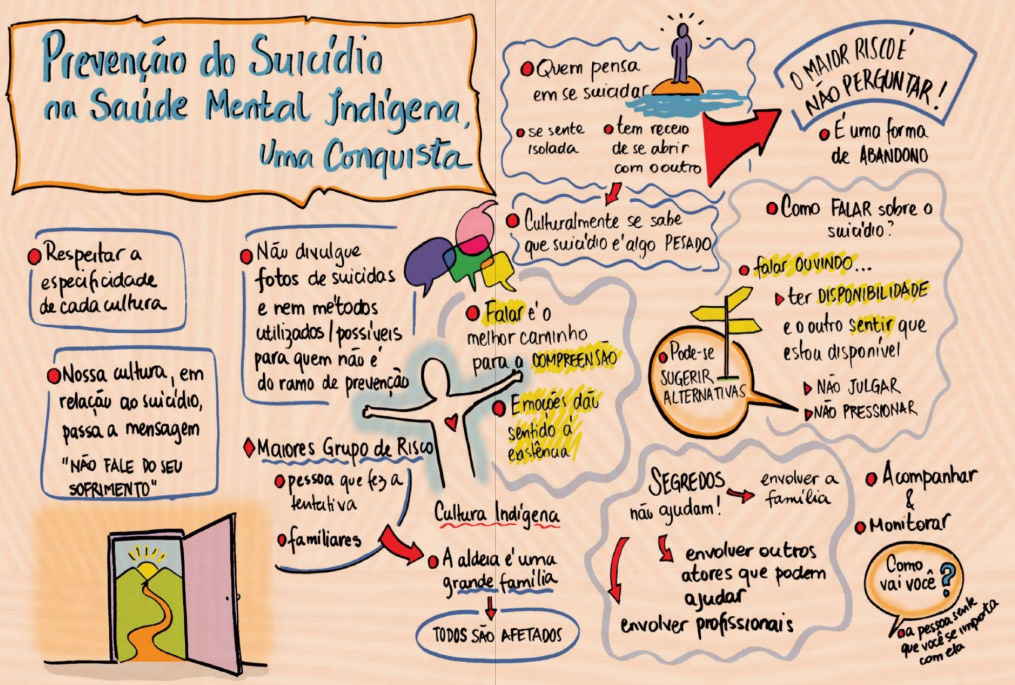 Prevenção do Suicídio
na Saúde Mental Indígena,
Uma Conquista
Respeitar a
especificidade
de cada cultura
Nossa cultura, em
relação ao suicídio,
passa a mensagem
"NÃO FALE DO SEU
SOFRIMENTO"
Não divulgue
fotos de suicidas
e nem métodos
utilizados/possíveis
para quem não é
do ramo de prevenção
Maiores Grupo de Risco
pessoa que fez a
tentativa
familiares
Cultura Indígena
A aldeia é uma
grande família
TODOS SÃO AFETADOS
Falar é o
melhor caminho
para a COMPREENSÃO
Emoções dão
sentido à
existência
Quem pensa
em se suicidar
se sente
isolada
tem receio
de se abrir
com o outro
Culturalmente se sabe
que suicídio é algo PESADO
O MAIOR RISCO É
NÃO PERGUNTAR!
É uma forma
de ABANDONO
Como FALAR sobre o
suicídio?
falar OUVINDO...
ter DISPONIBILIDADE
e o outro sentir que
estou disponível
NÃO JULGAR
NÃO PRESSIONAR
Pode-se
SUGERIR
ALTERNATIVAS
SEGREDOS
não ajudam!
envolver a
família
envolver outros
atores que podem
ajudar
envolver profissionais
Acompanhar
&
Monitorar
Como
vai você?
a pessoa sente
que você se importa
com ela